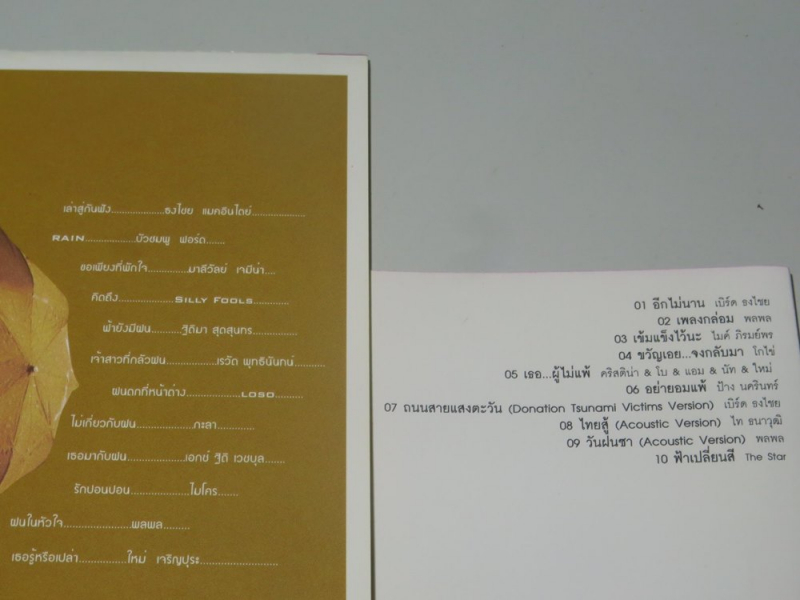 เล่าสู่กันฟัง..................ธงไชย แมคอินไตย์..................
RAIN.................บัวชมพู ฟอร์ด.......
ขอเพียงที่พักใจ..............มาลีวัลย์ เจมีน่า....
คิดถึง...................SILLY FOOLS............
ฟ้ายังมีฝน..........ฐิติมา สุตสุนทร...............
เจ้าสาวที่กลัวฝน.................เรวัต พุทธินันทน์...........
ฝนตกที่หน้าต่าง...................LOSO..........
ไม่เกี่ยวกับฝน...................กะลา.............
เธอมากับฝน....................เอกซ์ ฐิติ เวชบุล.......
รักปอนปอน....................ไมโคร.......
ฝนในหัวใจ.......................พลพล.........
เธอรู้หรือเปล่า................ใหม่ เจริญปุระ..........................
01 อีกไม่นาน เบิร์ด ธงไชย
02 เพลงกล่อม พลพล
03 เข้มแข็งไว้นะ ไมค์ ภิรมย์พร
04 ขวัญเอย...จงกลับมา โกไข่
05 เธอ...ผู้ไม่แพ้ คริสติน่า & โบ & แอม & นัท & ใหม่
06 อย่ายอมแพ้ ป้าง นครินทร์
07 ถนนสายแสงตะวัน (Donation Tsunami Victims Version) เบิร์ด ธงไชย
08 ไทยสู้ (Acoustic Version) ไท ธนาวุฒิ
09 วันฝนซา (Acoustic Version) พลพล
10 ฟ้าเปลี่ยนสี The Star